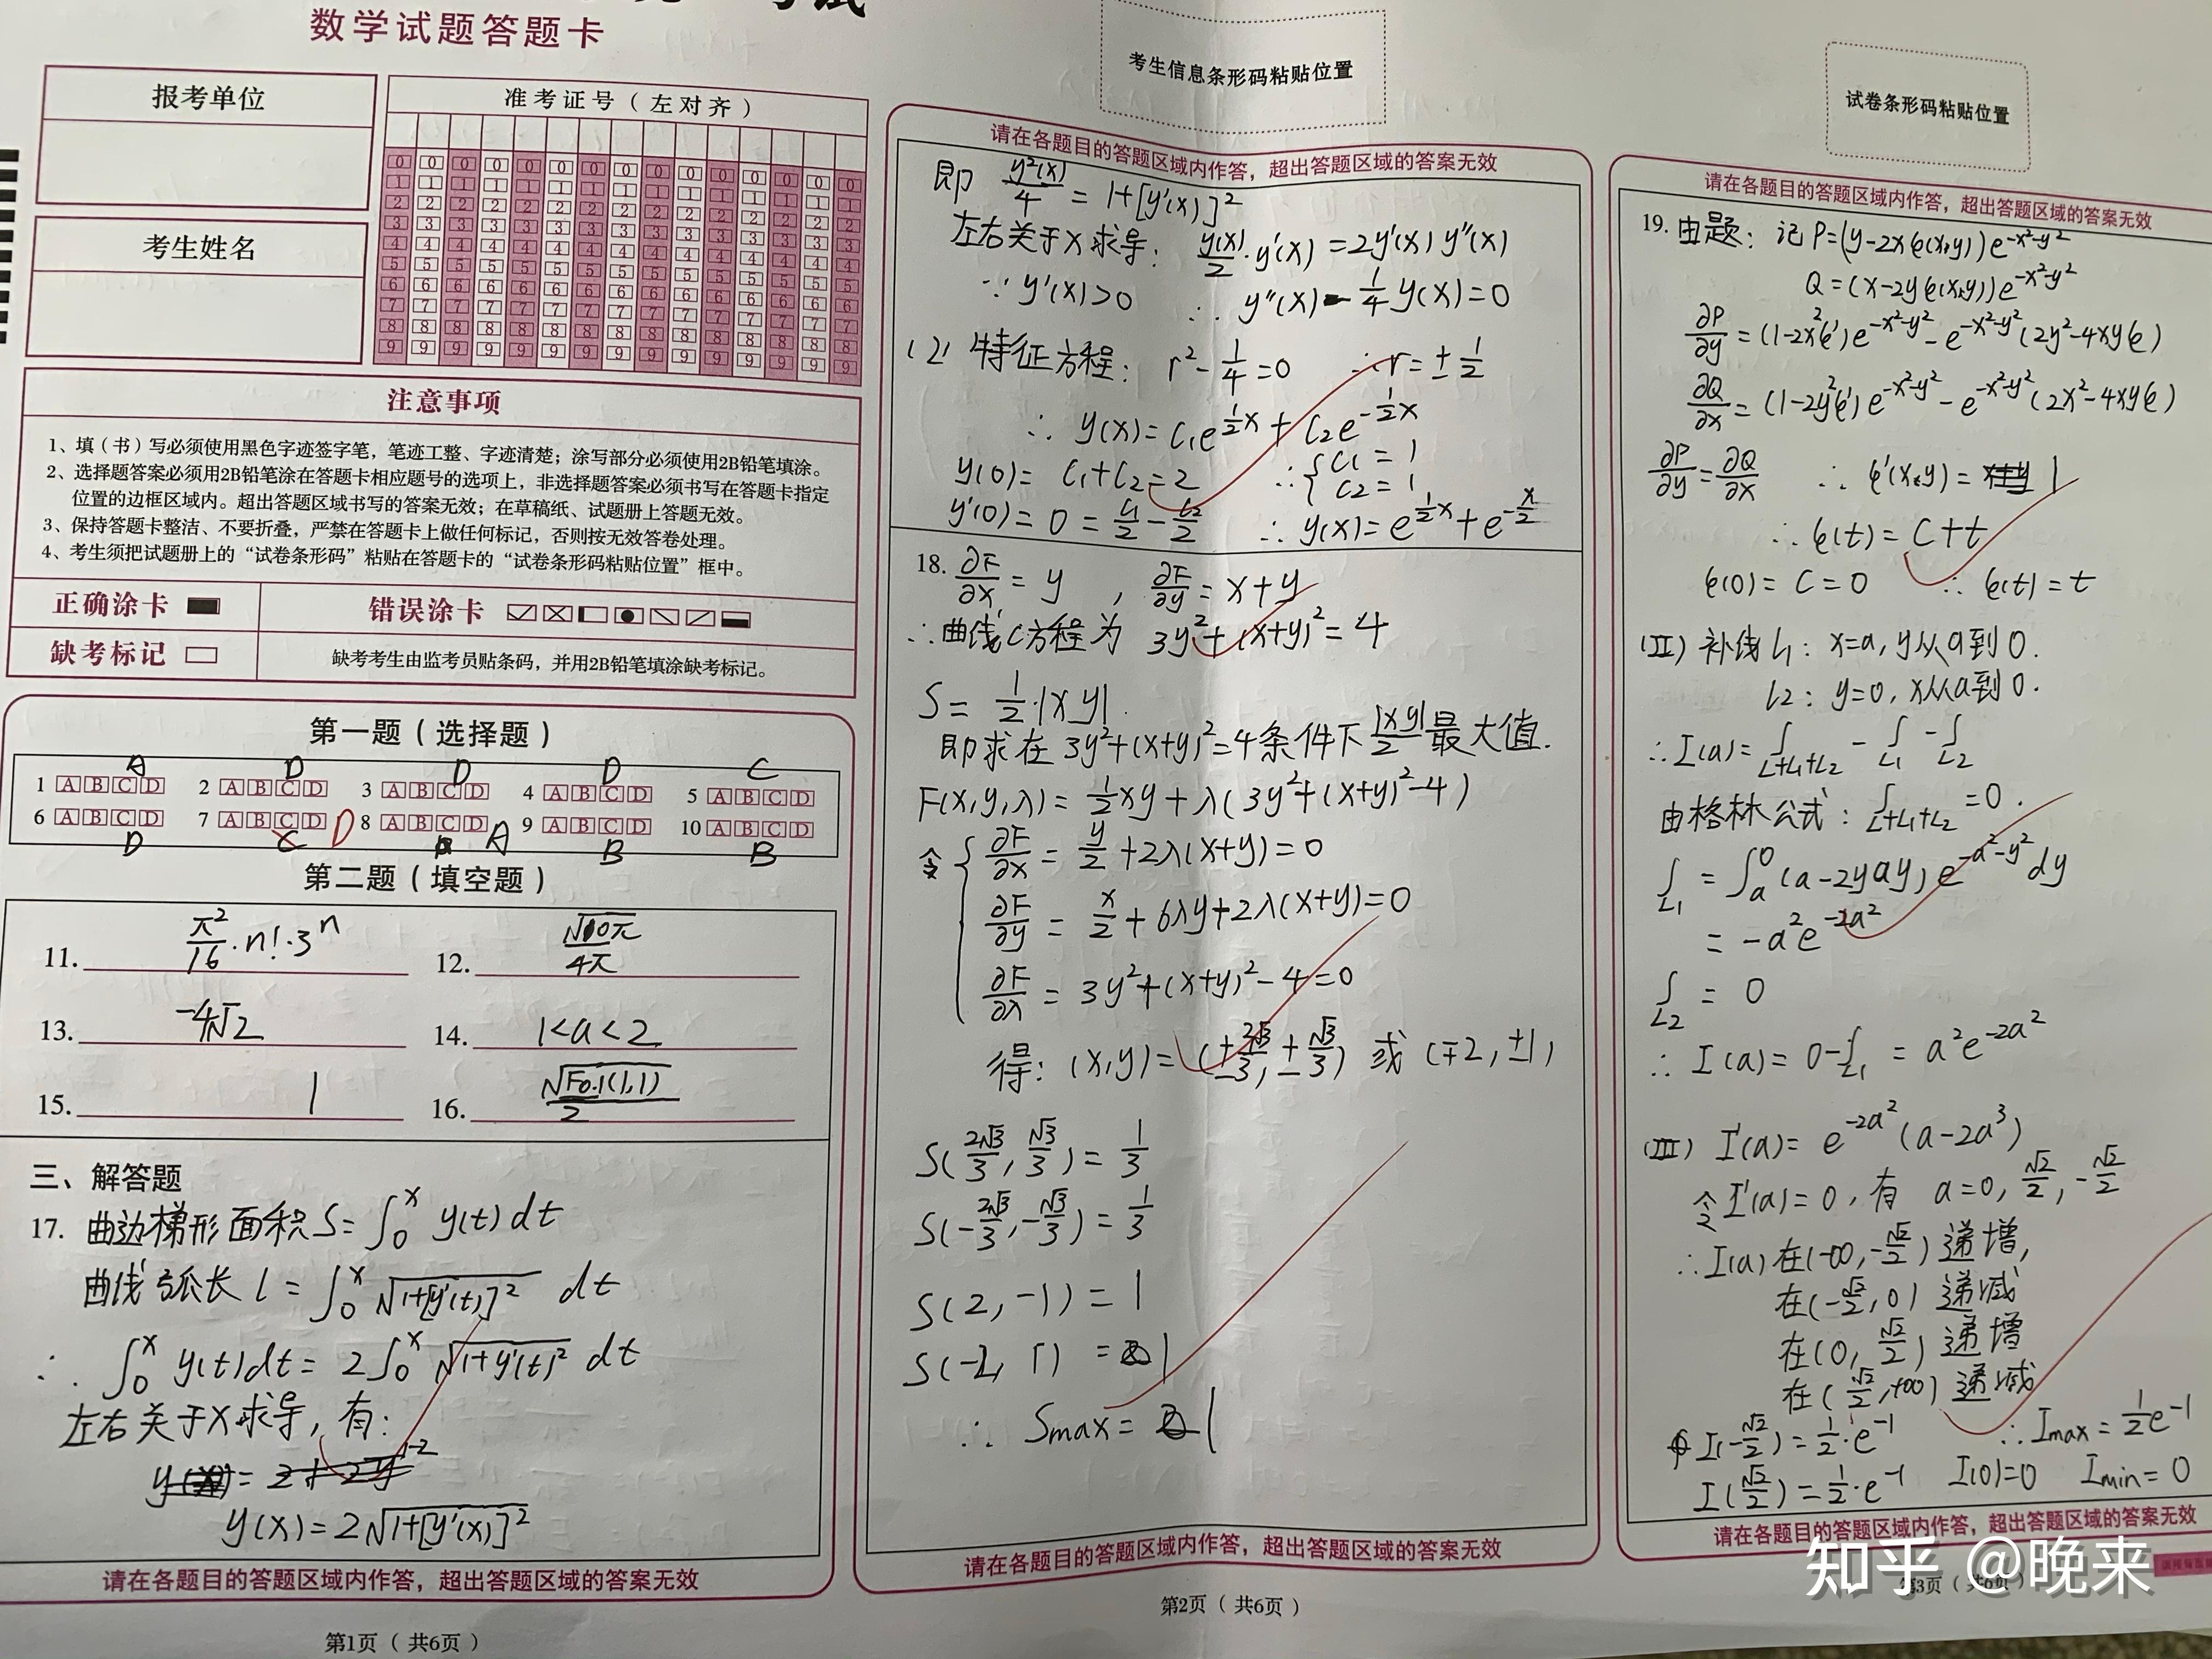 数学试题答题卡
报考单位
考生姓名
准考证号（左对齐）
0 0 0 0 0 0 0 0 0 0 0 0 0 0 0
1 1 1 1 1 1 1 1 1 1 1 1 1 1 1
2 2 2 2 2 2 2 2 2 2 2 2 2 2 2
3 3 3 3 3 3 3 3 3 3 3 3 3 3 3
4 4 4 4 4 4 4 4 4 4 4 4 4 4 4
5 5 5 5 5 5 5 5 5 5 5 5 5 5 5
6 6 6 6 6 6 6 6 6 6 6 6 6 6 6
7 7 7 7 7 7 7 7 7 7 7 7 7 7 7
8 8 8 8 8 8 8 8 8 8 8 8 8 8 8
9 9 9 9 9 9 9 9 9 9 9 9 9 9 9
注意事项
1、填（书）写必须使用黑色字迹签字笔，笔迹工整、字迹清楚；涂写部分必须使用2B铅笔填涂。
2、选择题答案必须用2B铅笔涂在答题卡相应题号的选项上，非选择题答案必须书写在答题卡指定
位置的边框区域内。超出答题区域书写的答案无效；在草稿纸、试题册上答题无效。
3、保持答题卡整洁、不要折叠，严禁在答题卡上做任何标记，否则按无效答卷处理。
4、考生须把试题册上的“试卷条形码”粘贴在答题卡的“试卷条形码粘贴位置”框中。
正确涂卡 错误涂卡
缺考标记 缺考考生由监考员贴条码，并用2B铅笔填涂缺考标记。
第一题（选择题）
A D D D C
1 A B C D 2 A B C D 3 A B C D 4 A B C D 5 A B C D
6 A B C D 7 A B C D D 8 A B C D 9 A B C D 10 A B C D
D C A B B
第二题（填空题）
11. π²/16 · n! · 3ⁿ 12. √10π/4π
13. -4√2 14. 1<a<2
15. 1 16. √F0.1(1,1)/2
三、解答题
17. 曲边梯形面积 S=∫₀ˣ y(t)dt
曲线弧长 l = ∫₀ˣ √(1+[y'(t)]²) dt
∴ ∫₀ˣ y(t)dt = 2∫₀ˣ √(1+y'(t)²) dt
左右关于x求导，有：
y(x) = 2√(1+[y'(x)]²)
请在各题目的答题区域内作答，超出答题区域的答案无效
第1页（共6页）
考生信息条形码粘贴位置
请在各题目的答题区域内作答，超出答题区域的答案无效
即 y²(x)/4 = 1+[y'(x)]²
左右关于x求导： y(x)/2 · y'(x) = 2y'(x)y''(x)
∵ y'(x)>0 ∴ y''(x) - 1/4 y(x)=0
(2) 特征方程： r² - 1/4 = 0 ∴ r = ± 1/2
∴ y(x) = C₁e^(½x) + C₂e^(-½x)
y(0) = C₁+C₂ = 2 ∴ { C₁ = 1
C₂ = 1
y'(0) = 0 = C₁/2 - C₂/2 ∴ y(x) = e^(½x) + e^(-x/2)
18. ∂F/∂x = y , ∂F/∂y = x+y
∴ 曲线C方程为 3y²+(x+y)²=4
S = 1/2·|xy|
即求在 3y²+(x+y)²=4 条件下 |xy|/2 最大值.
F(x,y,λ) = 1/2xy + λ(3y²+(x+y)²-4)
令 { ∂F/∂x = y/2 + 2λ(x+y) = 0
∂F/∂y = x/2 + 6λy+2λ(x+y)=0
∂F/∂λ = 3y²+(x+y)²-4=0
得： (x,y) = (±2√3/3, ±√3/3) 或 (∓2, ±1)
S(2√3/3, √3/3) = 1/3
S(-2√3/3, -√3/3) = 1/3
S(2,-1) = 1
S(-2, 1) = 1
∴ Smax = 1
请在各题目的答题区域内作答，超出答题区域的答案无效
第2页（共6页）
试卷条形码粘贴位置
请在各题目的答题区域内作答，超出答题区域的答案无效
19. 由题： 记 P=(y-2xφ(x,y))e^(-x²-y²)
Q = (x-2yφ(x,y))e^(-x²-y²)
∂P/∂y = (1-2x²φ')e^(-x²-y²) - e^(-x²-y²)(2y²-4xyφ)
∂Q/∂x = (1-2y²φ')e^(-x²-y²) - e^(-x²-y²)(2x²-4xyφ)
∂P/∂y = ∂Q/∂x ∴ φ'(x,y) = 1
∴ φ(t) = C+t
φ(0) = C = 0 ∴ φ(t) = t
(II) 补线 L₁： x=a, y从a到0.
L₂： y=0, x从a到0.
∴ I(a) = ∫L+L₁+L₂ - ∫L₁ - ∫L₂
由格林公式： ∫L+L₁+L₂ = 0.
∫L₁ = ∫ₐ⁰ (a-2yay)e^(-a²-y²)dy
= -a²e^(-2a²)
∫L₂ = 0
∴ I(a) = 0-∫L₁ = a²e^(-2a²)
(III) I'(a) = e^(-2a²)(a-2a³)
令 I'(a)=0, 有 a=0, √2/2, -√2/2
∴ I(a) 在(-∞, -√2/2) 递增,
在(-√2/2, 0) 递减
在(0, √2/2) 递增
在(√2/2, +∞) 递减
I(-√2/2) = 1/2·e⁻¹ ∴ Imax = 1/2e⁻¹
I(√2/2) = 1/2·e⁻¹ I(0)=0 Imin = 0
请在各题目的答题区域内作答，超出答题区域的答案无效
第3页（共6页）
知乎 @晚来